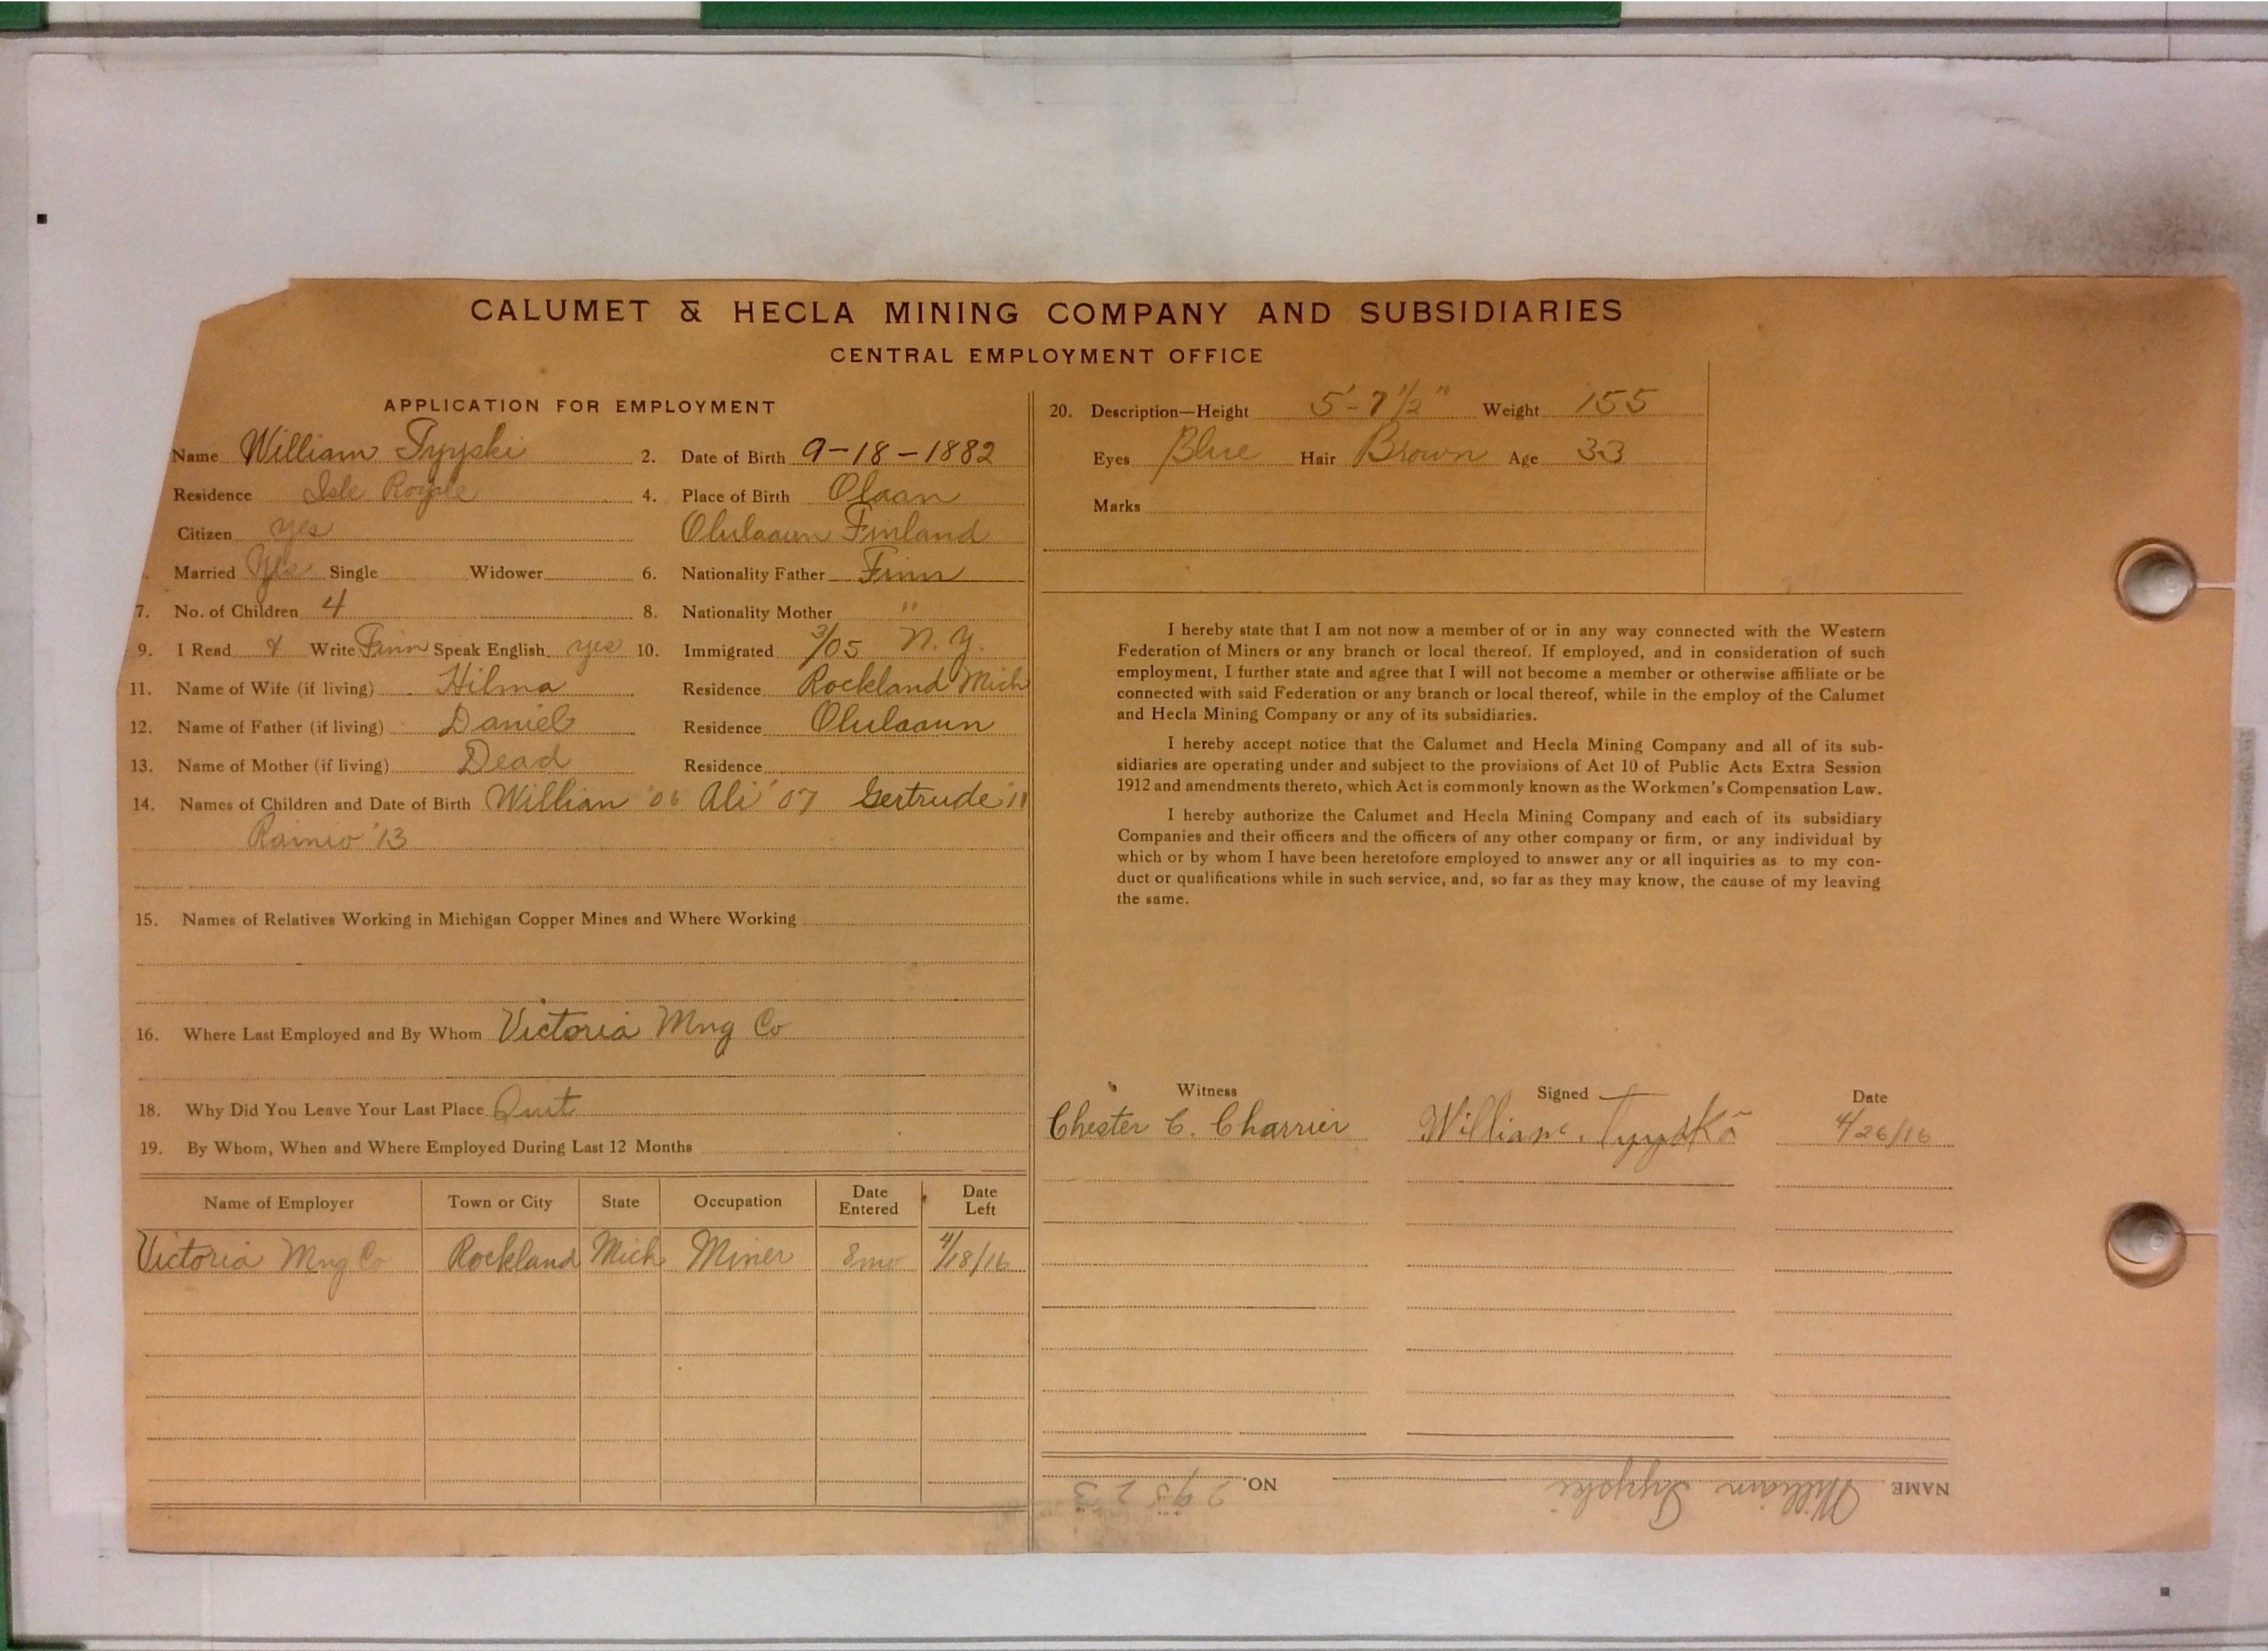 CALUMET & HECLA MINING COMPANY AND SUBSIDIARIES
CENTRAL EMPLOYMENT OFFICE
APPLICATION FOR EMPLOYMENT
Name William Tyyski 2. Date of Birth 9-18-1882
Residence Isle Royale 4. Place of Birth Olaan
Citizen yes Olulaaun Finland
Married Yes Single Widower 6. Nationality Father Finn
7. No. of Children 4 8. Nationality Mother "
9. I Read & Write Finn Speak English yes 10. Immigrated 3/05 N.Y.
11. Name of Wife (if living) Hilma Residence Rockland Mich
12. Name of Father (if living) Daniel Residence Olulaaun
13. Name of Mother (if living) Dead Residence
14. Names of Children and Date of Birth William '06 Ali '07 Gertrude '11
Rainio '13
15. Names of Relatives Working in Michigan Copper Mines and Where Working
16. Where Last Employed and By Whom Victoria Mng Co
18. Why Did You Leave Your Last Place Quit
19. By Whom, When and Where Employed During Last 12 Months
Name of Employer Town or City State Occupation Date Entered Date Left
Victoria Mng Co Rockland Mich Miner 8mo 4/18/16
20. Description—Height 5'-7 1/2" Weight 155
Eyes Blue Hair Brown Age 33
Marks
I hereby state that I am not now a member of or in any way connected with the Western
Federation of Miners or any branch or local thereof. If employed, and in consideration of such
employment, I further state and agree that I will not become a member or otherwise affiliate or be
connected with said Federation or any branch or local thereof, while in the employ of the Calumet
and Hecla Mining Company or any of its subsidiaries.
I hereby accept notice that the Calumet and Hecla Mining Company and all of its sub-
sidiaries are operating under and subject to the provisions of Act 10 of Public Acts Extra Session
1912 and amendments thereto, which Act is commonly known as the Workmen's Compensation Law.
I hereby authorize the Calumet and Hecla Mining Company and each of its subsidiary
Companies and their officers and the officers of any other company or firm, or any individual by
which or by whom I have been heretofore employed to answer any or all inquiries as to my con-
duct or qualifications while in such service, and, so far as they may know, the cause of my leaving
the same.
Witness Signed Date
Chester C. Charrier William Tyyskä 4/26/16
NAME William Tyyski NO. 29523